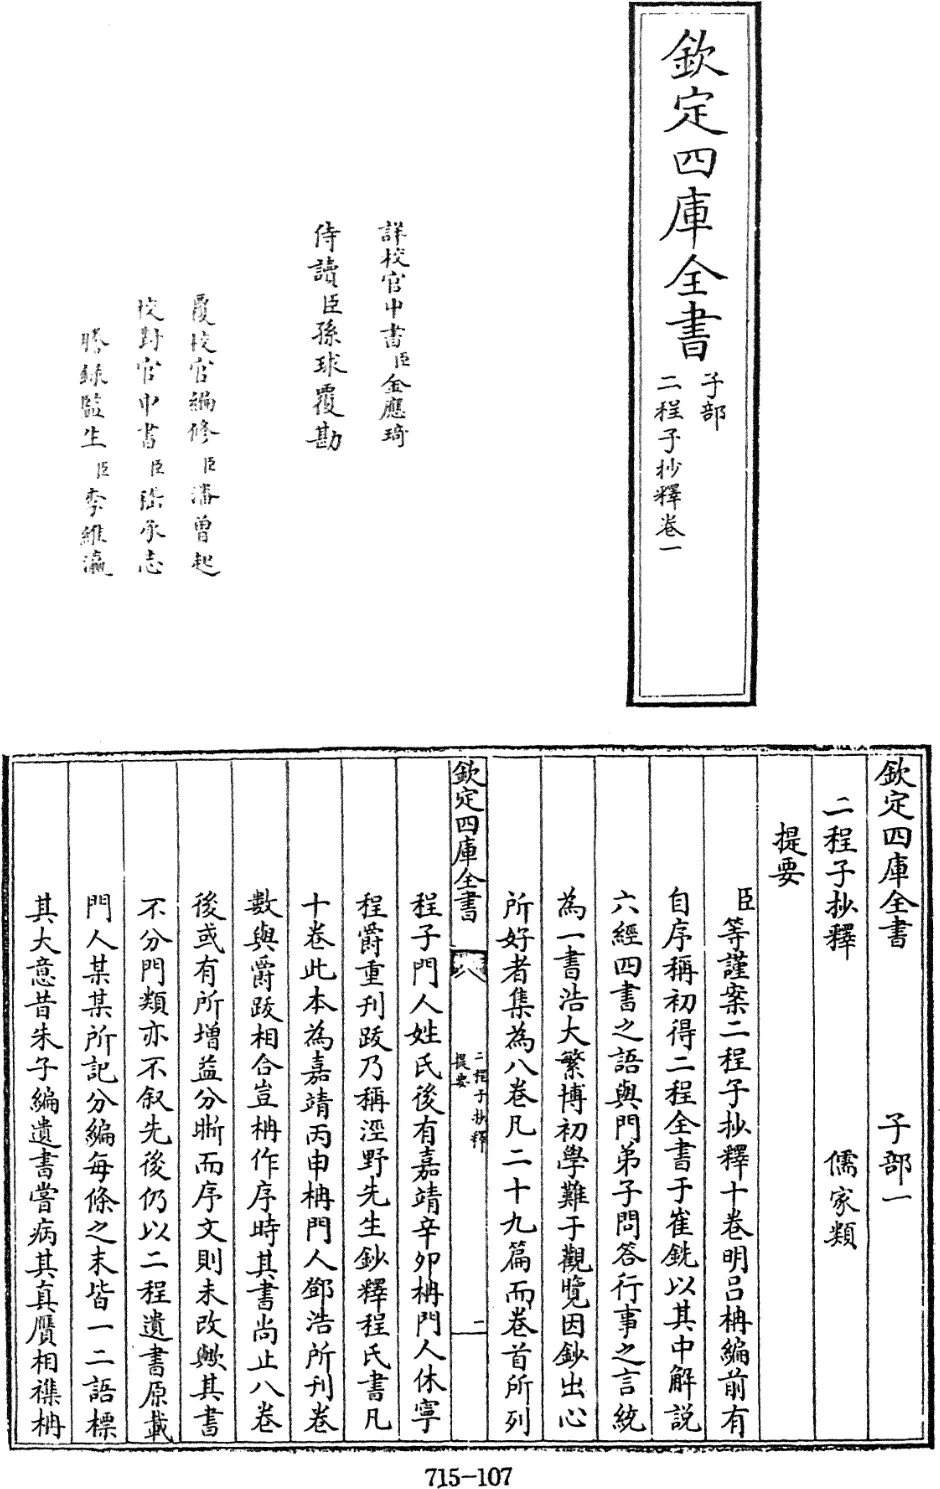 欽定四庫全書
子部
二程子抄釋卷一
詳校官中書臣金應琦
侍讀臣孫球覆勘
覆校官編修臣潘曾起
校對官中書臣張承志
謄錄監生臣李維瀛
欽定四庫全書
子部一
二程子抄釋
儒家類
提要
臣等謹案二程子抄釋十卷明呂柟編前有
自序稱初得二程全書于崔銑以其中解說
六經四書之語與門弟子問答行事之言統
為一書浩大繁博初學難于觀覽因鈔出心
所好者集為八卷凡二十九篇而卷首所列
欽定四庫全書
二程子抄釋
提要
二
程子門人姓氏後有嘉靖辛卯柟門人休寧
程爵重刊跋乃稱涇野先生鈔釋程氏書凡
十卷此本為嘉靖丙申柟門人鄧浩所刊卷
數與爵跋相合豈柟作序時其書尚止八卷
後或有所增益分晰而序文則未改歟其書
不分門類亦不叙先後仍以二程遺書原載
門人某某所記分編每條之末皆一二語標
其大意昔朱子編遺書嘗病其真贋相襍柟
715-107